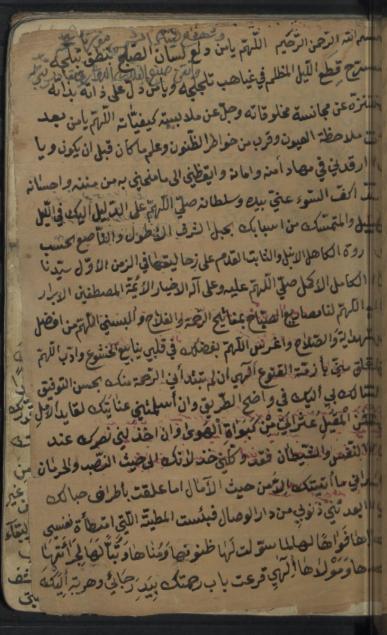 الله الرحمن الرحيم اللهم يا من دلع لسان الصباح بنطق تبلجه
وسرح قطع الليل المظلم في غياهب تلجلجه ويا من دل على ذاته بذاته
تنزه عن مجانسة مخلوقاته وجل عن كيفياته اللهم يا من بعد
ملاحظة العيون وقرب من خواطر الظنون وعلم ما كان قبل ان يكون ويا
ارقدني في مهاد أمنه وامانه وايقظني الى ما منحني به من مننه واحسانه
اكف السوء عني بيده وسلطانه صلى اللهم على الدليل اليك في الليل
والمتمسك من اسبابك بحبل الشرف الاطول والناصع الحسب
ذروة الكاهل والثابت القدم على زحاليفها في الزمن الاول سيدنا
الكامل الاكمل صلى اللهم عليه وعلى آله الاخيار الائمة المصطفين الابرار
اللهم لنا مصاريع الصباح بمفاتيح الرحمة والفلاح والبسني اللهم من افضل
الهداية والصلاح واغرس اللهم في قلبي ينابيع الخشوع وادب اللهم
مني بأزمة القنوع الهي ان لم تبتدأني الرحمة منك بحسن التوفيق
السالك بي اليك في واضح الطريق وان اسلمتني لقايد الامل
فمن المقيل عثراتي من كبواة الهوى وان خذلني نصرك عند
النفس والشيطان فقد وكلني خذلانك الى حيث النصب والحرمان
اتراني ما اتيتك الا من حيث الآمال اما علقت باطراف حبالك
ذنوبي من دار الوصال فبئست المطية التي امتطأة نفسي
هواها فواها لها لما سولت لها ظنونها ومناها وتبا لها لجرأتها
ومولاها الهي قرعت باب رحمتك بيد رجائي وهربت اليك